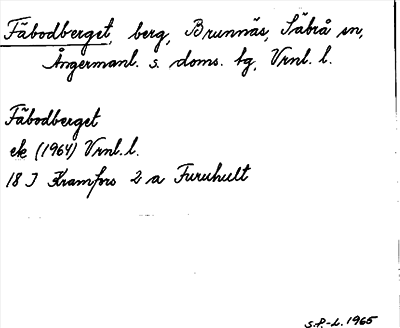 Fäbodberget, berg, Brunnäs, Säbrå sn,
Ångermanl. s. doms. tg, Vrnl. l.
Fäbodberget
ek (1964) Vrnl. l.
18 J Kramfors 2 a Furuhult
S.P.-L. 1965